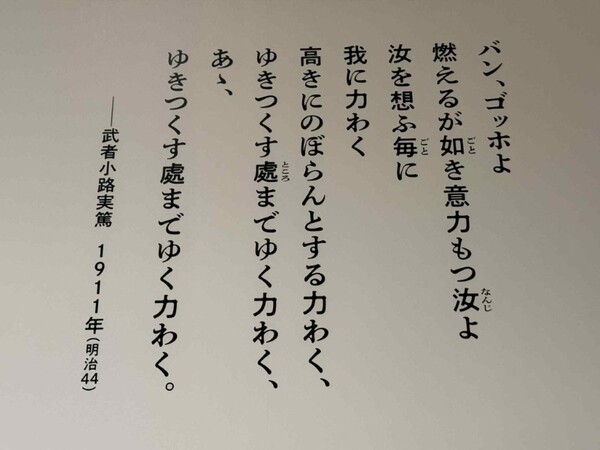 バン、ゴッホよ
燃えるが如き意力もつ汝よ
汝を想ふ毎に
我に力わく
高きにのぼらんとする力わく、
ゆきつくす處までゆく力わく、
あゝ、
ゆきつくす處までゆく力わく。
――武者小路実篤　1911年（明治44）